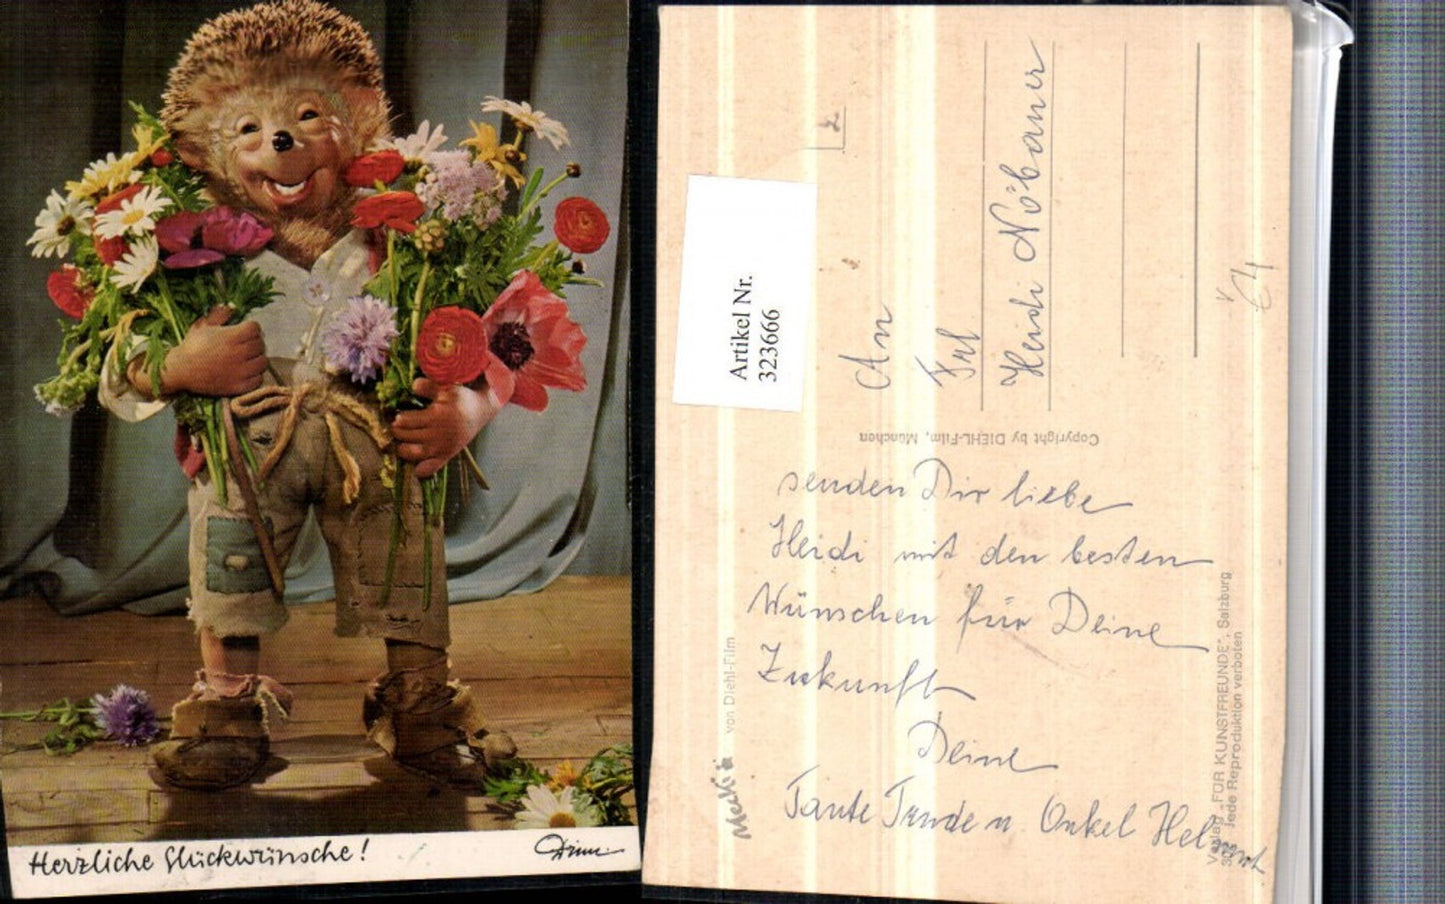 Herzliche Glückwünsche!
Diehl
Artikel Nr.
323666
2
An
Frl
Heidi Nöbauer
€4
Copyright by DIEHL-Film, München
senden Dir liebe
Heidi mit den besten
Wünschen für Deine
Zukunft
Deine
Tante Trude u Onkel Helmut
Mecki
von Diehl-Film
Verlag „FÜR KUNSTFREUNDE", Salzburg
Jede Reproduktion verboten